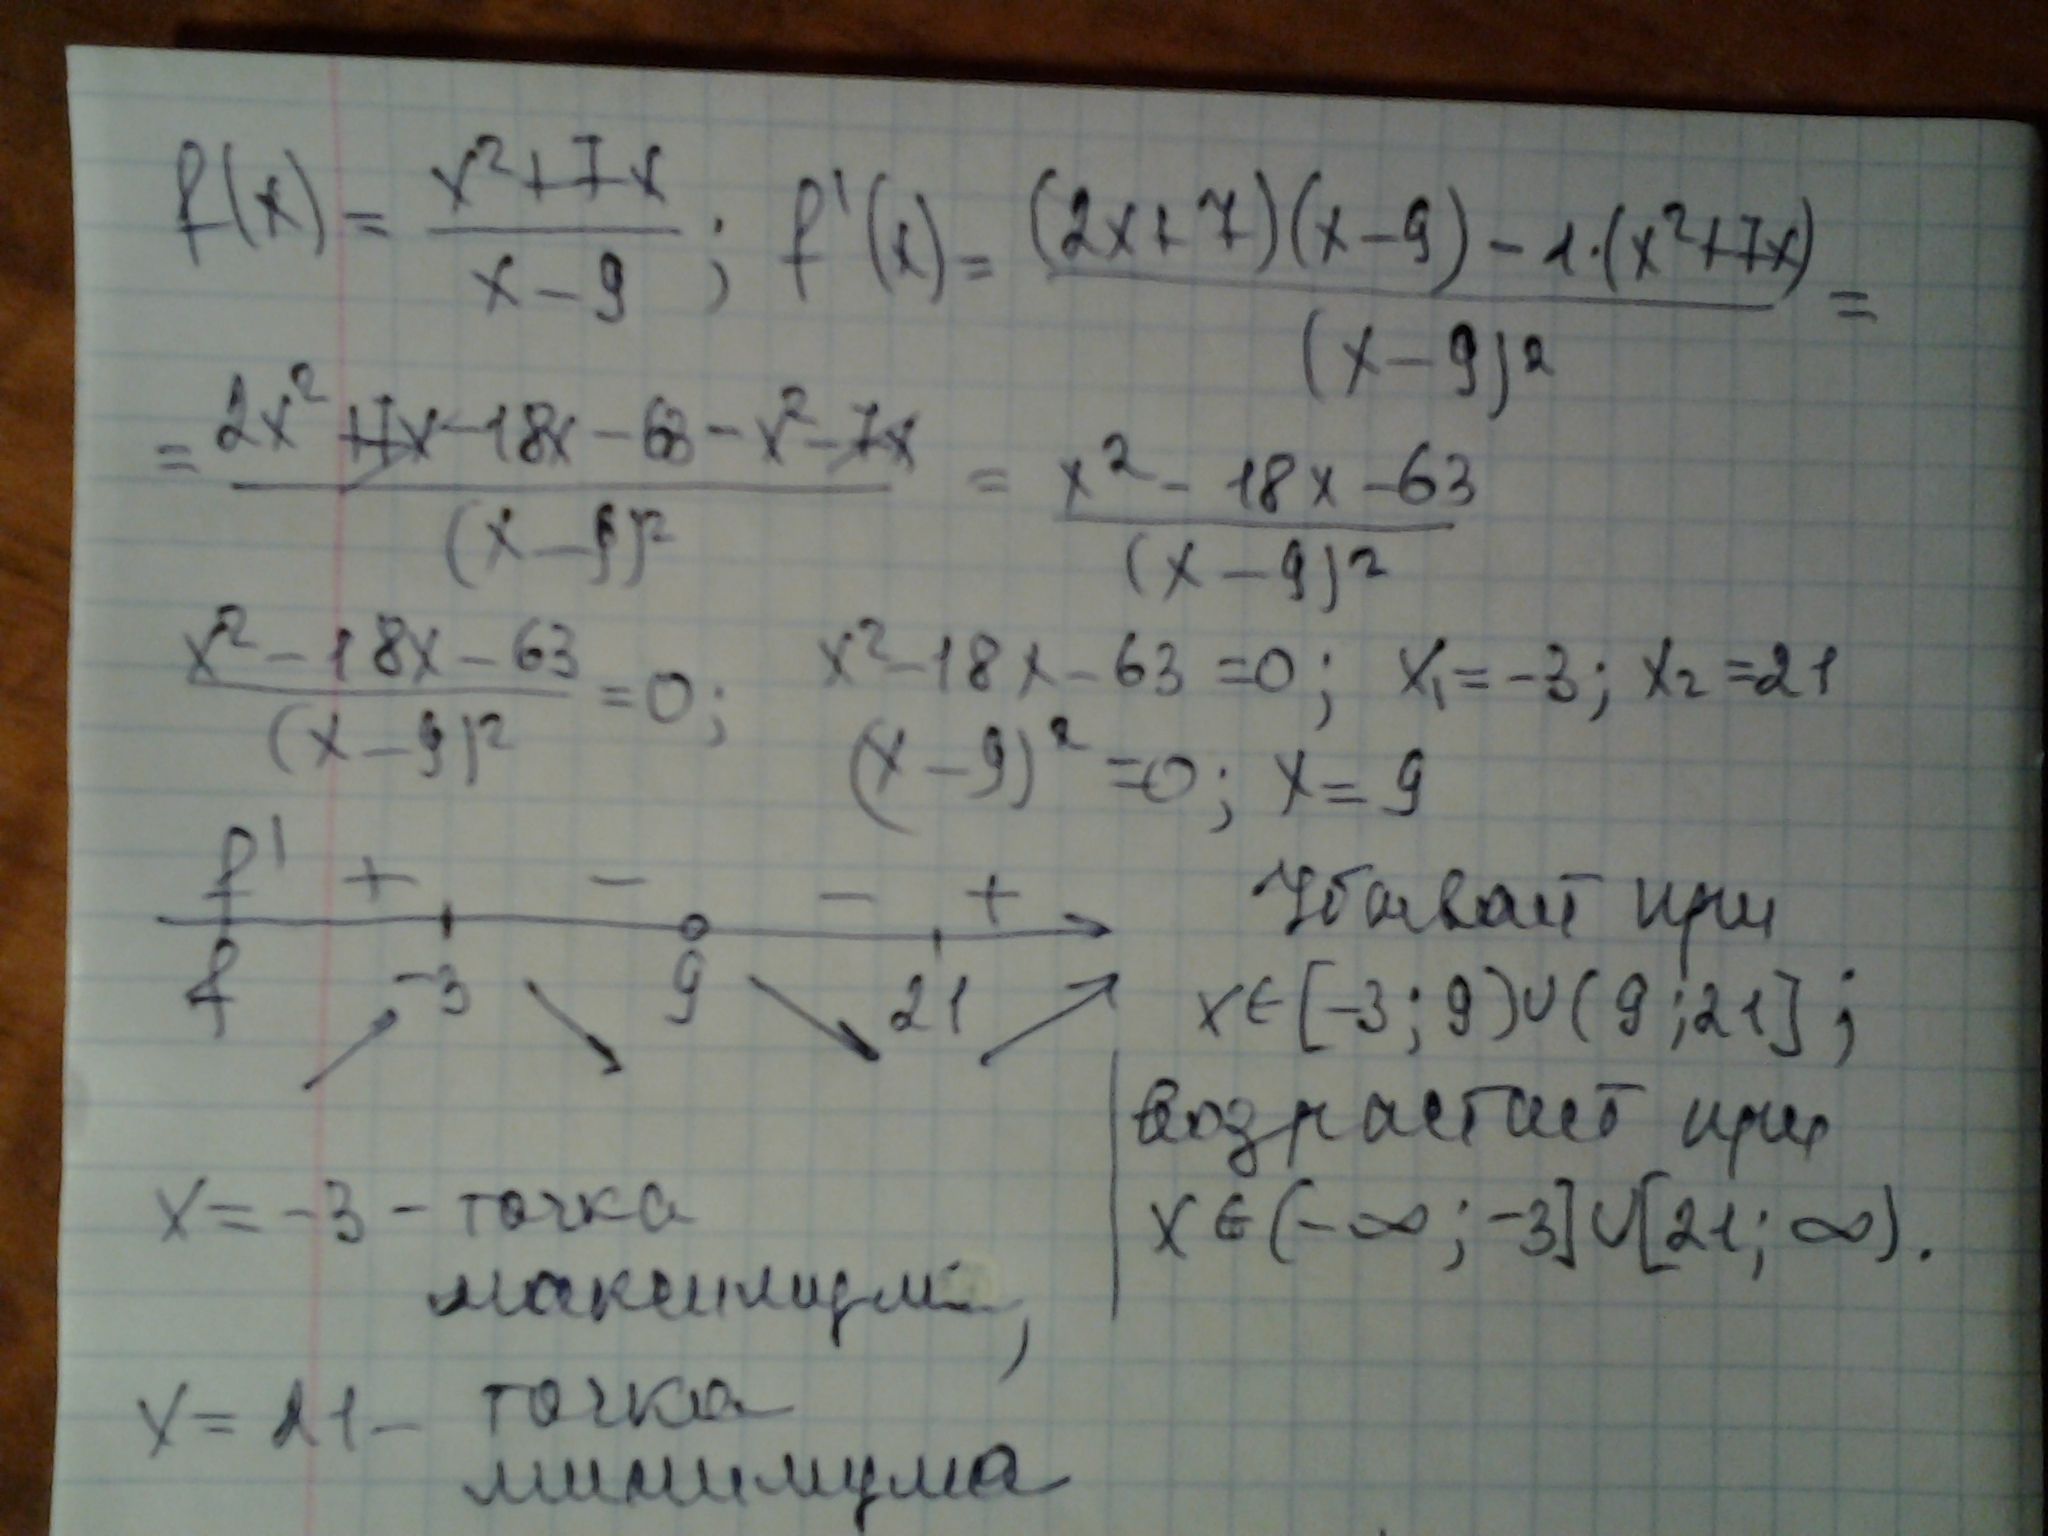 f(x) = (x²+7x)/(x-9); f'(x) = ((2x+7)(x-9) - 1·(x²+7x))/(x-9)² =
= (2x²+7x-18x-63-x²-7x)/(x-9)² = (x²-18x-63)/(x-9)²
(x²-18x-63)/(x-9)² = 0; x²-18x-63=0; x₁=-3; x₂=21
(x-9)²=0; x=9
f' + - - +
f -3 9 21
Убывает при
x∈[-3;9)∪(9;21];
возрастает при
x∈(-∞;-3]∪[21;∞).
x=-3 - точка
максимума,
x=21- точка
минимума